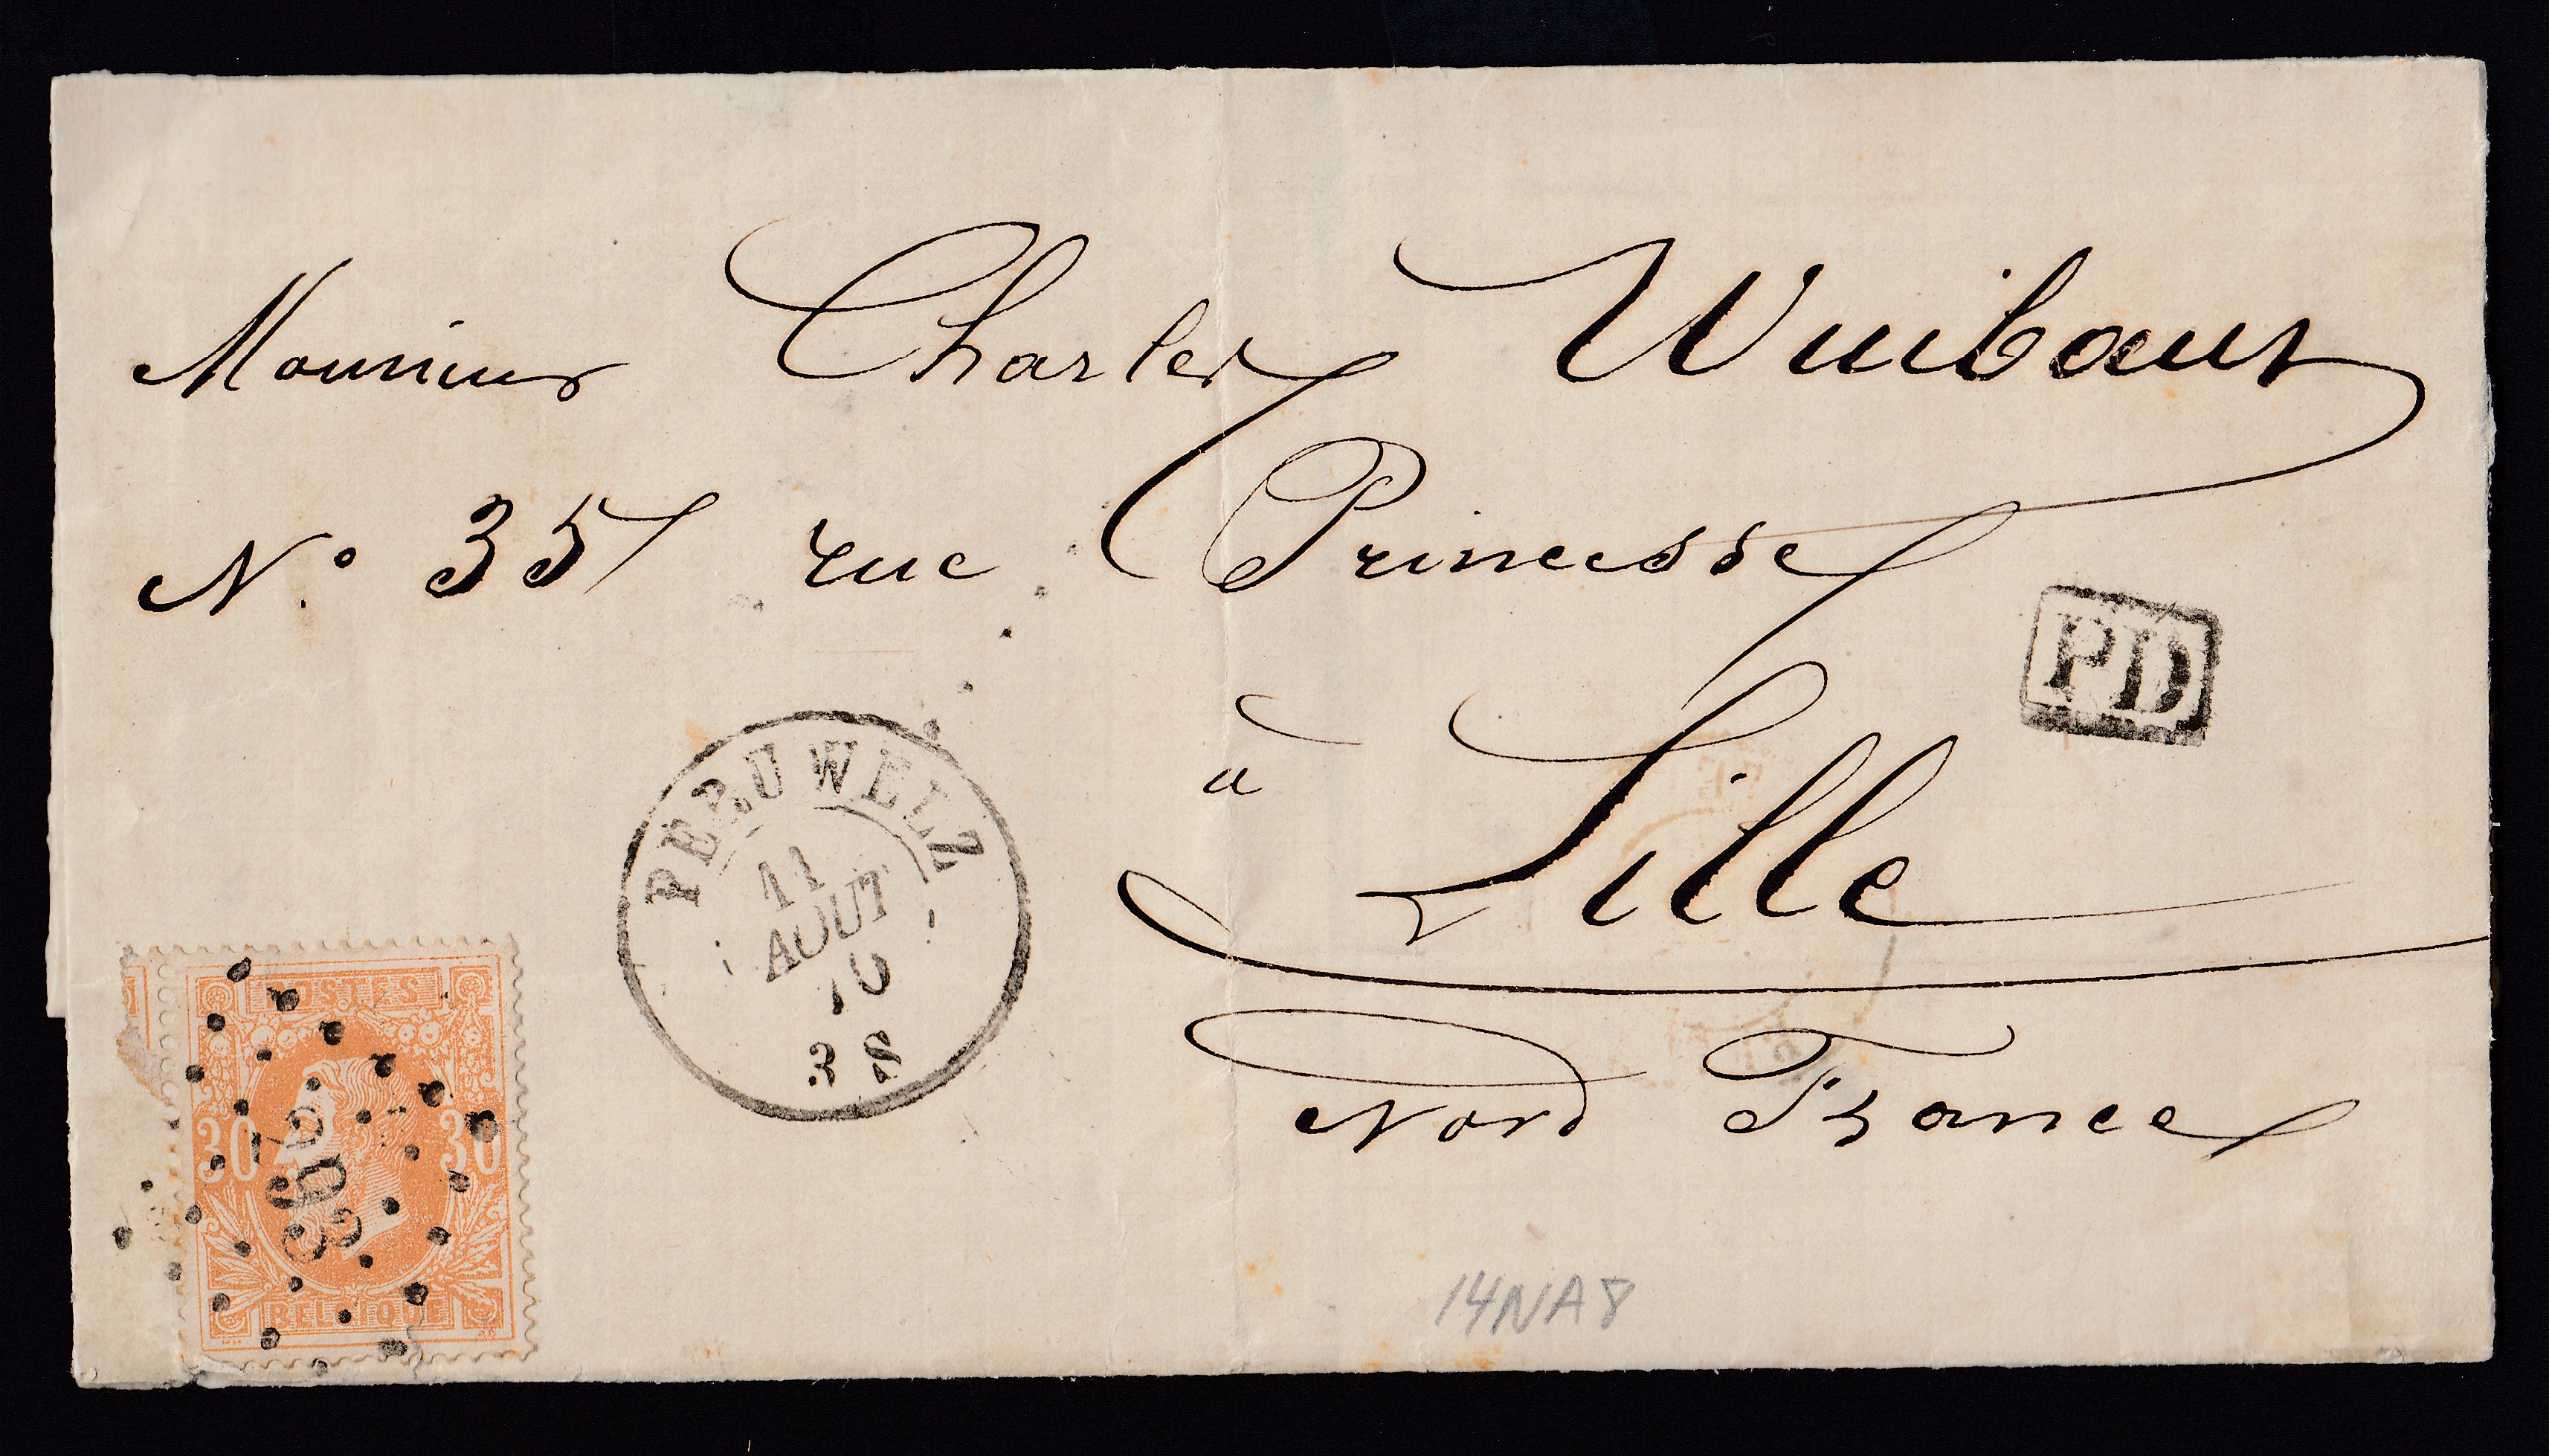 Monsieur Charles Wuibaut
N° 35 rue Princesse
PD
à Lille
PERUWELZ
11
AOUT
70
3 S
Nord France
POSTES
30 30
293
BELGIQUE
14NA8